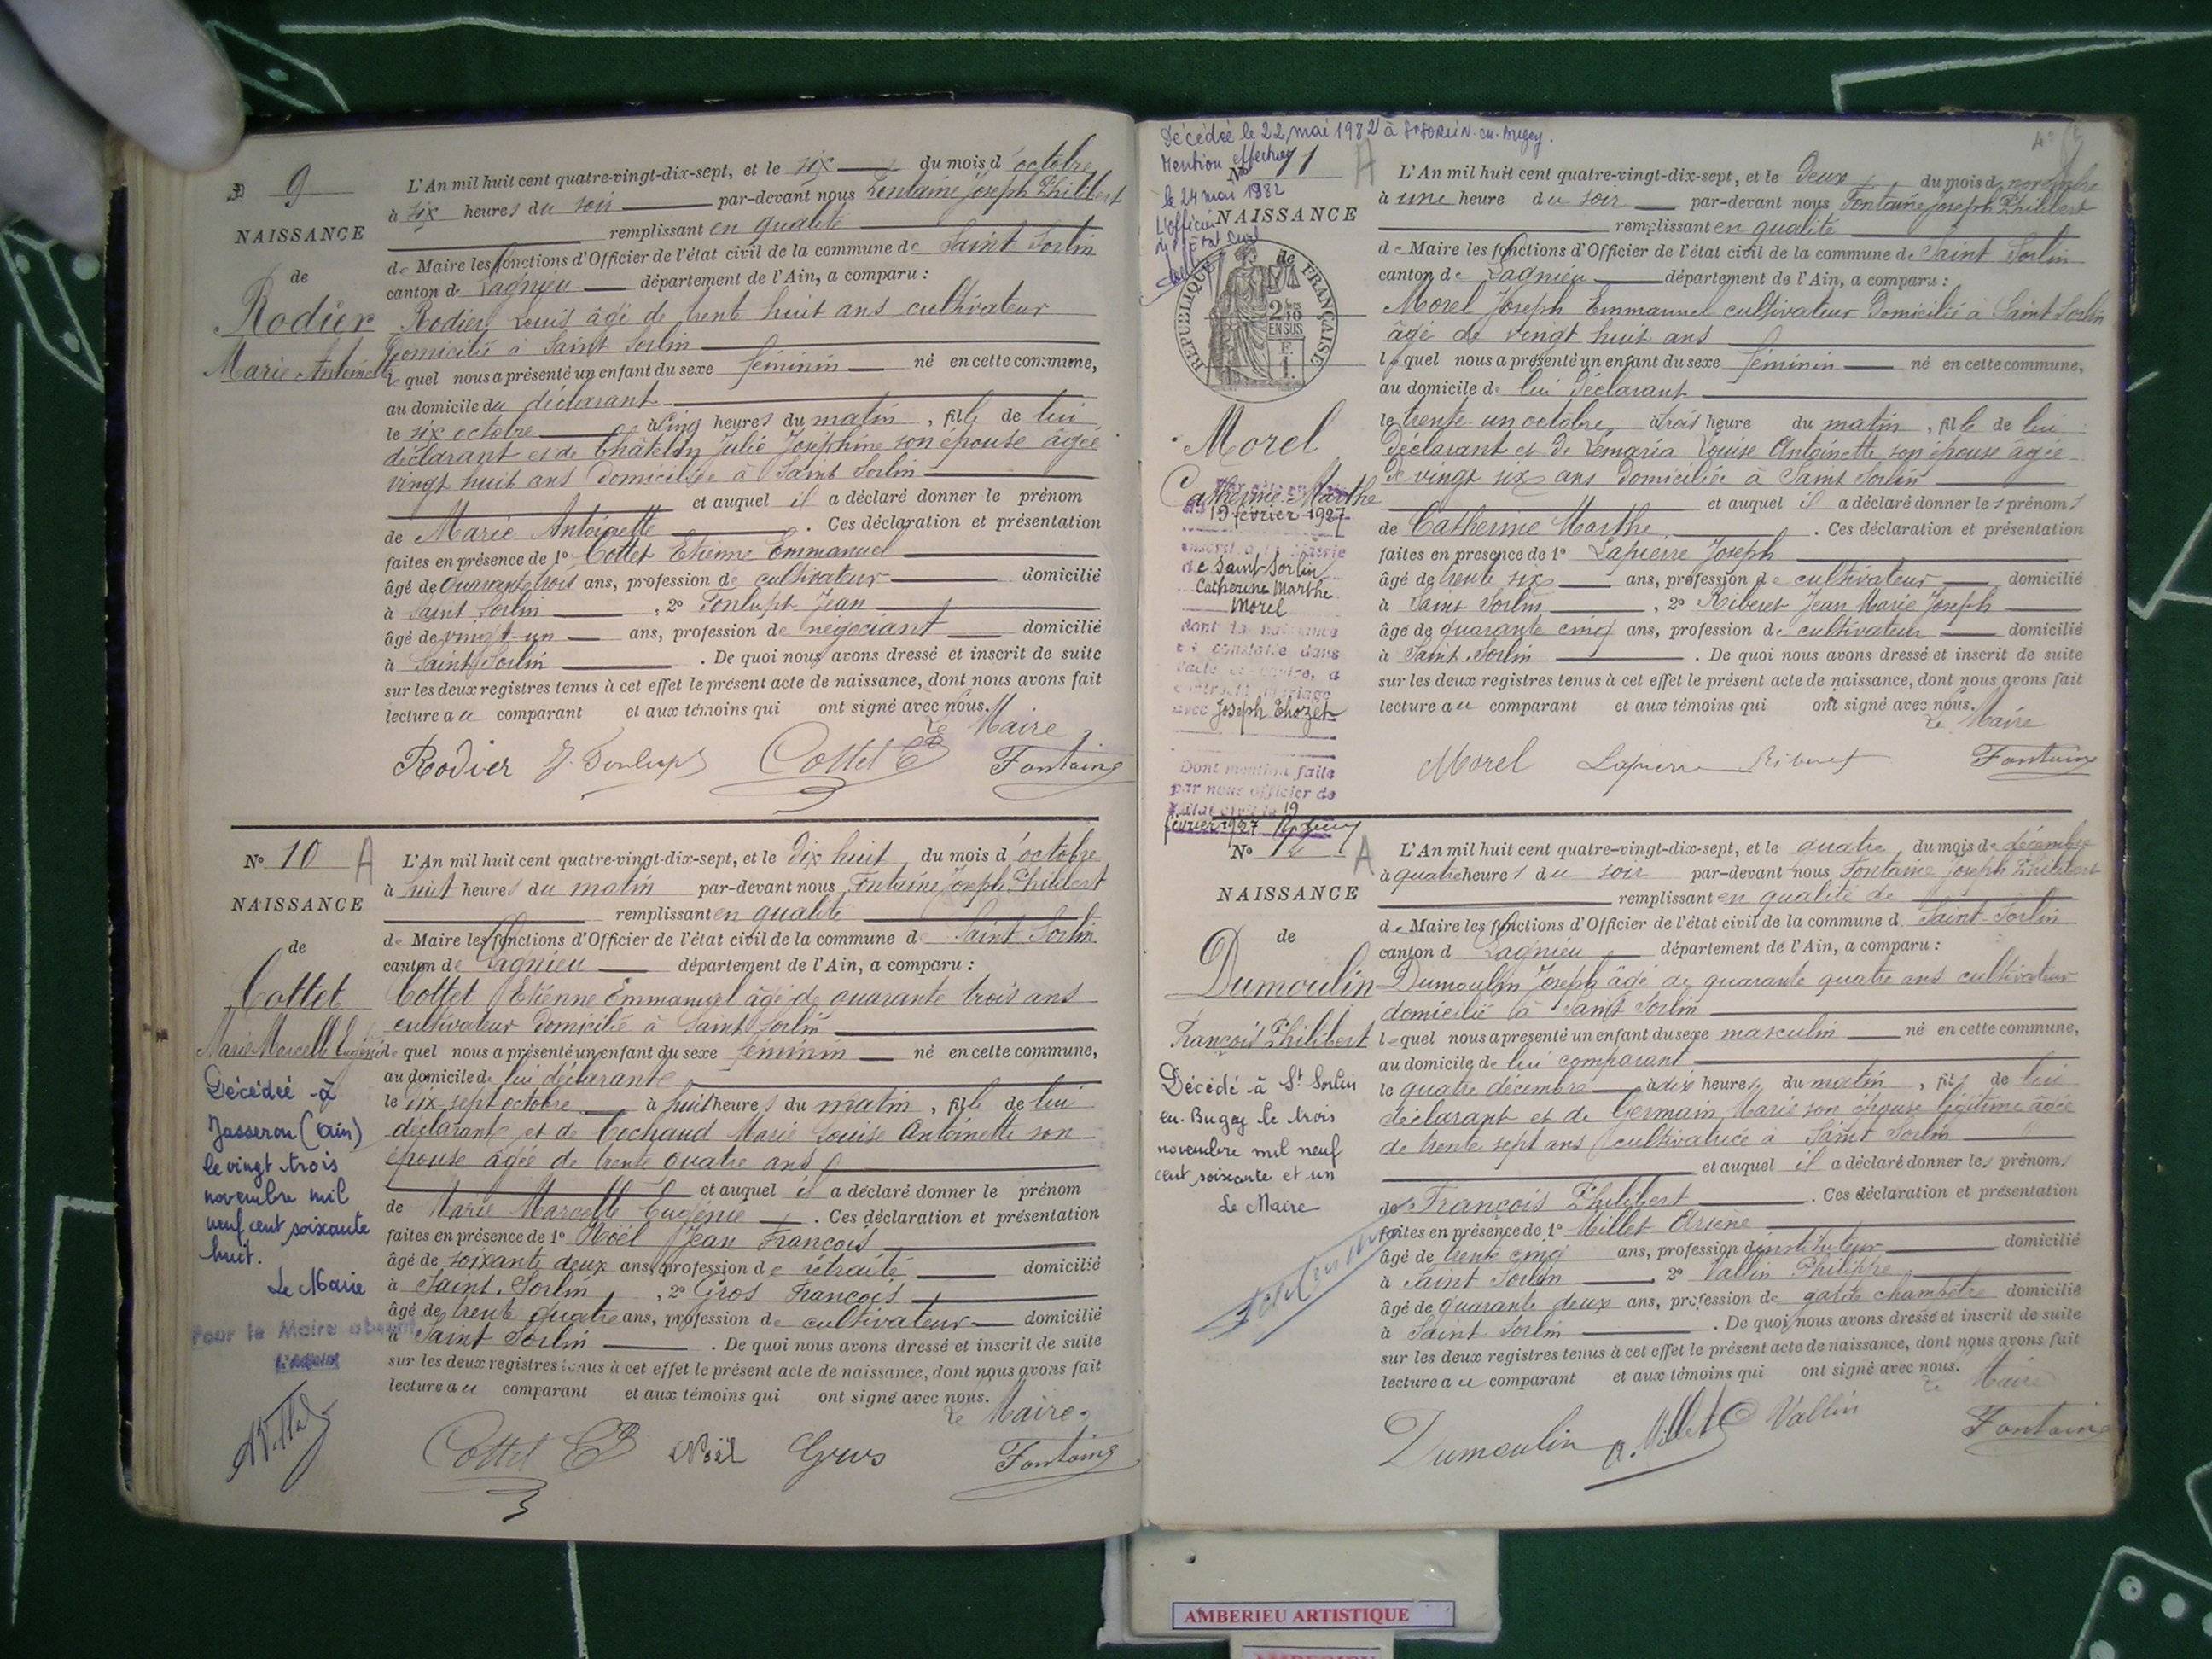 9
NAISSANCE
de
Rodier
Marie Antoinette
L'An mil huit cent quatre-vingt-dix-sept, et le six du mois d'octobre
à six heures du soir par-devant nous Fontaine Joseph Philibert
remplissant en qualité
de Maire les fonctions d'Officier de l'état civil de la commune de Saint Sorlin
canton de Lagnieu département de l'Ain, a comparu :
Rodier Louis âgé de trente huit ans cultivateur
domicilié à Saint Sorlin
lequel nous a présenté un enfant du sexe féminin né en cette commune,
au domicile du déclarant
le six octobre à cinq heures du matin, fille de lui
déclarant et de Châtelin Julie Joséphine son épouse âgée
vingt huit ans domiciliée à Saint Sorlin
et auquel il a déclaré donner le prénom
de Marie Antoinette. Ces déclaration et présentation
faites en présence de 1° Cottet Etienne Emmanuel
âgé de quarante trois ans, profession de cultivateur domicilié
à Saint Sorlin, 2° Fonlupt Jean
âgé de vingt un ans, profession de négociant domicilié
à Saint Sorlin. De quoi nous avons dressé et inscrit de suite
sur les deux registres tenus à cet effet le présent acte de naissance, dont nous avons fait
lecture au comparant et aux témoins qui ont signé avec nous.
Le Maire
Rodier J. Fonlupt Cottet E Fontaine
N° 10 A
NAISSANCE
de
Cottet
Marie Marcelle Eugénie
Décédée à
Jasseron (Ain)
le vingt trois
novembre mil
neuf cent soixante
huit.
Le Maire
Pour le Maire absent
L'Adjoint
L'An mil huit cent quatre-vingt-dix-sept, et le dix huit du mois d'octobre
à huit heures du matin par-devant nous Fontaine Joseph Philibert
remplissant en qualité
de Maire les fonctions d'Officier de l'état civil de la commune de Saint Sorlin
canton de Lagnieu département de l'Ain, a comparu :
Cottet Etienne Emmanuel âgé de quarante trois ans
cultivateur domicilié à Saint Sorlin
lequel nous a présenté un enfant du sexe féminin né en cette commune,
au domicile de lui déclarant
le dix sept octobre à huit heures du matin, fille de lui
déclarant et de Cochaud Marie Louise Antoinette son
épouse âgée de trente quatre ans
et auquel il a déclaré donner le prénom
de Marie Marcelle Eugénie. Ces déclaration et présentation
faites en présence de 1° Noël Jean François
âgé de soixante deux ans, profession de retraité domicilié
à Saint Sorlin, 2° Gros François
âgé de trente quatre ans, profession de cultivateur domicilié
à Saint Sorlin. De quoi nous avons dressé et inscrit de suite
sur les deux registres tenus à cet effet le présent acte de naissance, dont nous avons fait
lecture au comparant et aux témoins qui ont signé avec nous.
Le Maire
Cottet E Noël Gros Fontaine
Décédée le 22 mai 1982 à St SORLIN-en-Bugey.
Mention effectuée
le 24 mai 1982
L'officier
de l'Etat Civil
N° 11 A
NAISSANCE
de
RÉPUBLIQUE FRANÇAISE
2/10 EN SUS
F.
1.
Morel
Catherine Marthe
19 février 1927
inscrit à la mairie
de Saint Sorlin
Catherine Marthe
Morel
dont la naissance
est constatée dans
l'acte ci-contre, a
contracté mariage
avec Joseph Thozet
Dont mention faite
par nous officier de
l'état civil le 19
février 1927
L'An mil huit cent quatre-vingt-dix-sept, et le deux du mois de novembre
à une heure du soir par-devant nous Fontaine Joseph Philibert
remplissant en qualité
de Maire les fonctions d'Officier de l'état civil de la commune de Saint Sorlin
canton de Lagnieu département de l'Ain, a comparu :
Morel Joseph Emmanuel cultivateur domicilié à Saint Sorlin
âgé de vingt huit ans
lequel nous a présenté un enfant du sexe féminin né en cette commune,
au domicile de lui déclarant
le trente un octobre, à trois heure du matin, fille de lui
déclarant et de Lémaria Louise Antoinette son épouse âgée
de vingt six ans domiciliée à Saint Sorlin
et auquel il a déclaré donner les prénoms
de Catherine Marthe. Ces déclaration et présentation
faites en présence de 1° Lapierre Joseph
âgé de trente six ans, profession de cultivateur domicilié
à Saint Sorlin, 2° Riberet Jean Marie Joseph
âgé de quarante cinq ans, profession de cultivateur domicilié
à Saint Sorlin. De quoi nous avons dressé et inscrit de suite
sur les deux registres tenus à cet effet le présent acte de naissance, dont nous avons fait
lecture au comparant et aux témoins qui ont signé avec nous.
Le Maire
Morel Lapierre Riberet Fontaine
N° 12 A
NAISSANCE
de
Dumoulin
François Philibert
Décédé à St Sorlin
en-Bugey le trois
novembre mil neuf
cent soixante et un
Le Maire
L'An mil huit cent quatre-vingt-dix-sept, et le quatre du mois de décembre
à quatre heures du soir par-devant nous Fontaine Joseph Philibert
remplissant en qualité de
de Maire les fonctions d'Officier de l'état civil de la commune d Saint-Sorlin
canton d Lagnieu département de l'Ain, a comparu :
Dumoulin Joseph âgé de quarante quatre ans cultivateur
domicilié à Saint Sorlin
lequel nous a présenté un enfant du sexe masculin né en cette commune,
au domicile de lui comparant
le quatre décembre à dix heures du matin, fils de lui
déclarant et de Germain Marie son épouse légitime âgée
de trente sept ans cultivatrice à Saint Sorlin
et auquel il a déclaré donner les prénoms
de François Philibert. Ces déclaration et présentation
faites en présence de 1° Millet Arsène
âgé de trente cinq ans, profession d'instituteur domicilié
à Saint Sorlin, 2° Vallin Philippe
âgé de quarante deux ans, profession de garde champêtre domicilié
à Saint Sorlin. De quoi nous avons dressé et inscrit de suite
sur les deux registres tenus à cet effet le présent acte de naissance, dont nous avons fait
lecture au comparant et aux témoins qui ont signé avec nous.
Le Maire
Dumoulin A. Millet Vallin Fontaine
AMBERIEU ARTISTIQUE